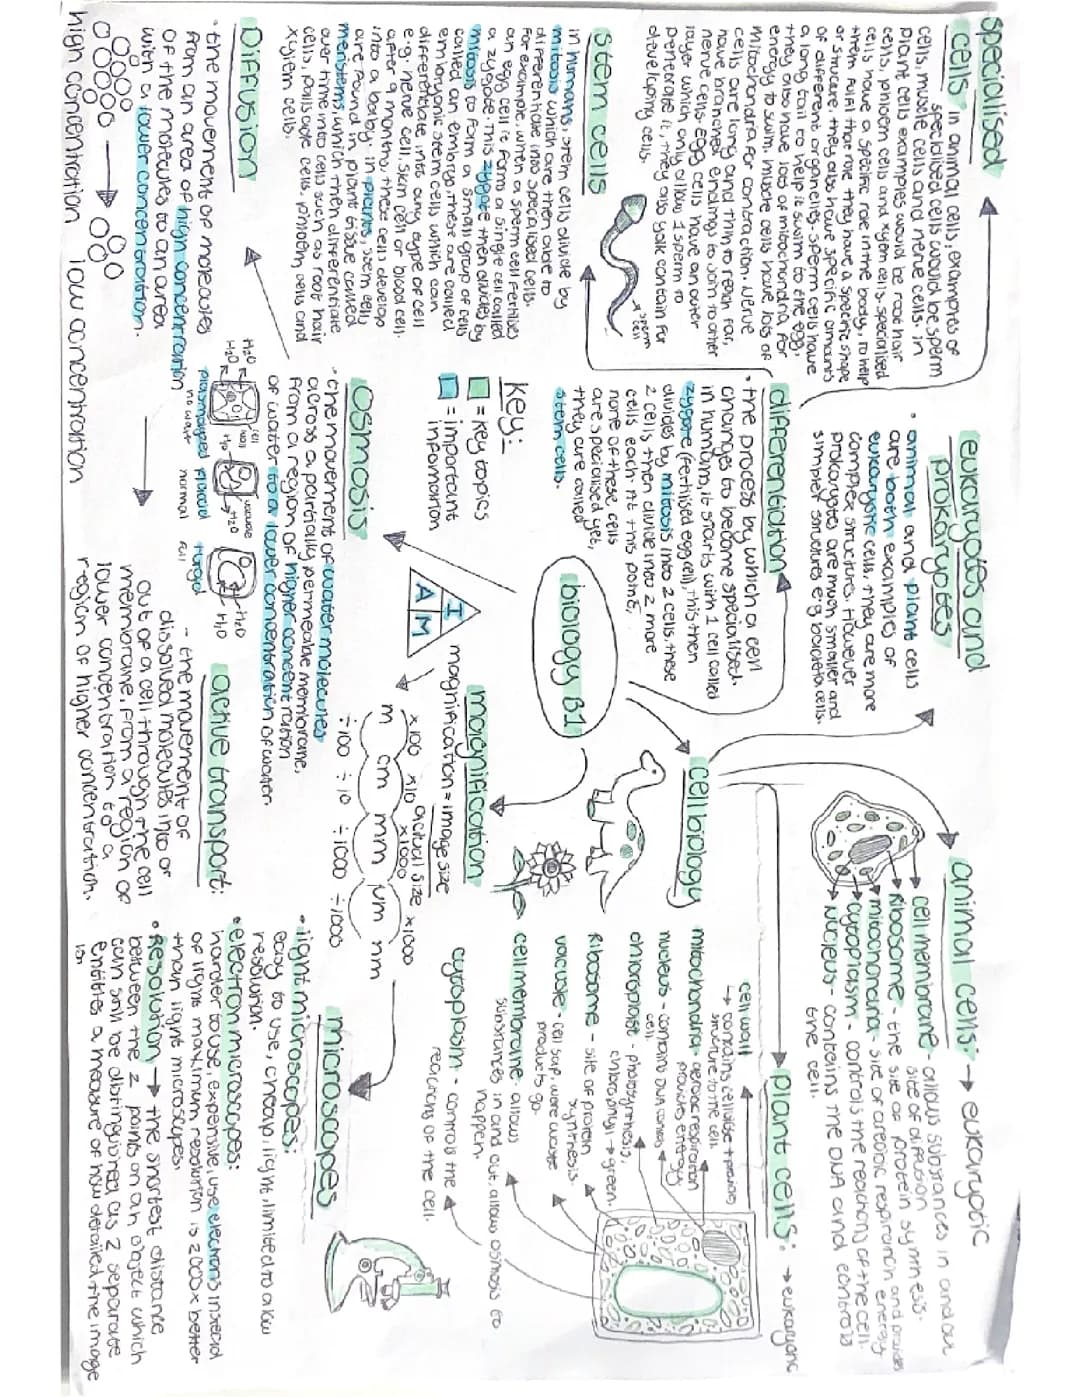 specialised
cells
in animal cells, examples of
specialised cells would be sperm
cells, muscle cells and nerve cells. in
plant cells examples would be root hair
cells, phloem cells and xylem cells. specialised
cells have a specific role in the body, to help
them fulfil that role they have a specific shape
or structure, they also have specific amounts
of different organelles. sperm cells have
a long tail to help it swim to the egg,
they also have lots of mitochondria for
energy to swim, muscle cells have lots of
mitochondria for contraction. nerve
cells are long and thin to reach far,
have branched endings to join to other
nerve cells. egg cells have an outer
layer which only allows 1 sperm to
penetrate it, they also yolk contain for
developing cells.
sperm
cell
stem cells
in humans, stem cells divide by
mitosis which are then able to
differentiate into specialised cells.
for example, when a sperm cell fertilises
an egg cell it forms a single cell called
a zygote. This zygote then divides by
mitosis to form a small group of cells
called an embryo. these are called
embryonic stem cells which can
differentiate into any type of cell
e.g. nerve cell, skin cell or blood cell.
after 9 months, these cells develop
into a baby. in plants, stem cells
are found in plant tissue called
meristems, which then differentiate
over time into cells such as root hair
cells, palisade cells, phloem cells and
xylem cells.
Diffusion
• the movement of molecules
from an area of high concentration
of the molecules to an area
with a lower concentration.
high concentration
low concentration
eukaryotes and
prokaryotes
• animal and plant cells
are both examples of
eukaryotic cells. they are more
complex structures. However
prokaryotes are much smaller and
simpler structures e.g bacteria cells.
differentiation
• the process by which a cell
changes to become specialised.
in humans, it starts with 1 cell called
zygote (fertilised egg cell), this then
divides by mitosis into 2 cells. these
2 cells then divide into 2 more
cells each. At this point,
none of these cells
are specialised yet,
they are called
stem cells.
key:
= key topics
= important
infomation
biology B1
osmosis
• the movement of water molecules
across a partially permeable membrane,
from a region of higher concentration
of water to a lower concentration of water.
H2O
H2O
cell
wall
H2O
vacuole
H2O
H2O
H2O
plasmolyzed flaccid turgid
no water normal full
active transport:
- the movement of
dissolved molecules into or
out of a cell through the cell
membrane, from a region of
lower concentration to a
region of higher concentration.
magnification
I
A M
magnification = image size
actual size
x100 x10 x1000 x1000
m cm mm μm nm
÷100 ÷10 ÷1000 ÷1000
cell biology
animal cells: → eukaryotic
cell membrane - allows substances in and out
site of diffusion
Ribosome - the site of protein synthesis.
mitochondria - site of areobic respiration and provides energy
cytoplasm - controls the reaction of the cell.
Nucleus - contains the DNA and controls
the cell.
plant cells: → eukaryotic
cell wall
→ contains cellulose + provides
structure to the cell.
mitochondria - aerobic respiration
provides energy
nucleus - contains DNA controls
cell.
chloroplast - photosynthesis,
chlorophyll → green.
Ribosome - site of protein
synthesis.
vacuole - cell sap, were waste
products go.
cell membrane - allows
substances in and out, allows osmosis to
happen.
cytoplasm - controls the
reactions of the cell.
microscopes
• light microscopes:
easy to use, cheap, light, limited to a low
resolution.
• electron microscopes:
harder to use, expensive, use electrons instead
of light, maximum resolution is 2000x better
than light microscopes.
• RESOLUTION → the shortest distance
between the 2 points on an object which
can still be distinguished as 2 separate
entities a measure of how detailed the image
is.